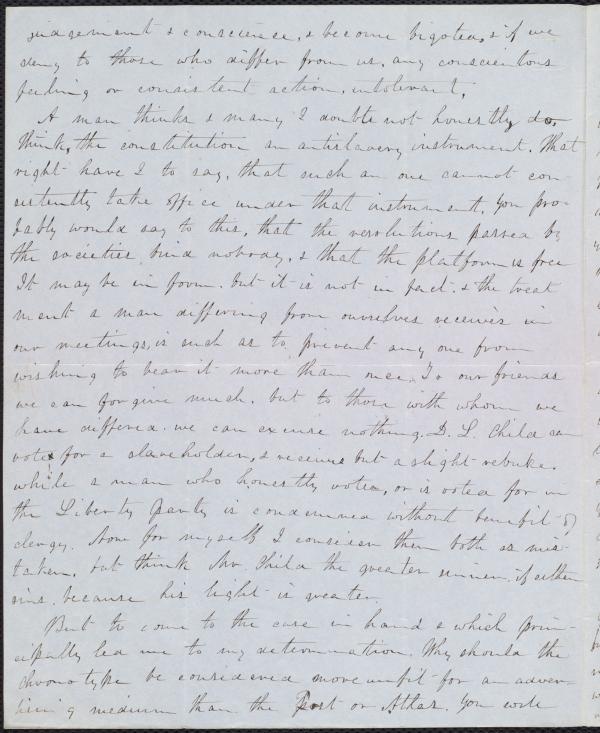 judgement & conscience, & become bigoted, & if we
deny to those who differ from us, any conscientous
feeling or consistent action, intolerant.
A man thinks & many I doubt not honestly do,
think, the constitution an antislavery instrument. What
right have I to say, that such an one cannot con-
sistently take office under that instrument. You pro-
bably would say to this, that the resolutions passed by
the societies bind nobody, & that the platform is free
It may be in form. but it is not in fact. & the treat
ment a man differing from ourselves receives in
our meetings, is such as to prevent any one from
wishing to bear it more than once. To our friends
we can forgive much. but to those with whom we
have differed. we can excuse nothing. D. L. Child can
vote for a slaveholder, & receive but a slight rebuke.
while a man who honestly votes, or is voted for in
the Liberty party is condemned without benefit of
clergy. Now for myself I consider them both as mis-
taken. but think Mr. Child the greater sinner, if either
sins. because his light is greater.
But to come to the case in hand & which prin-
cipally led me to my determination. Why should the
chronotype be considered more unfit for an adver-
tising medium than the Post or Atlas. You will